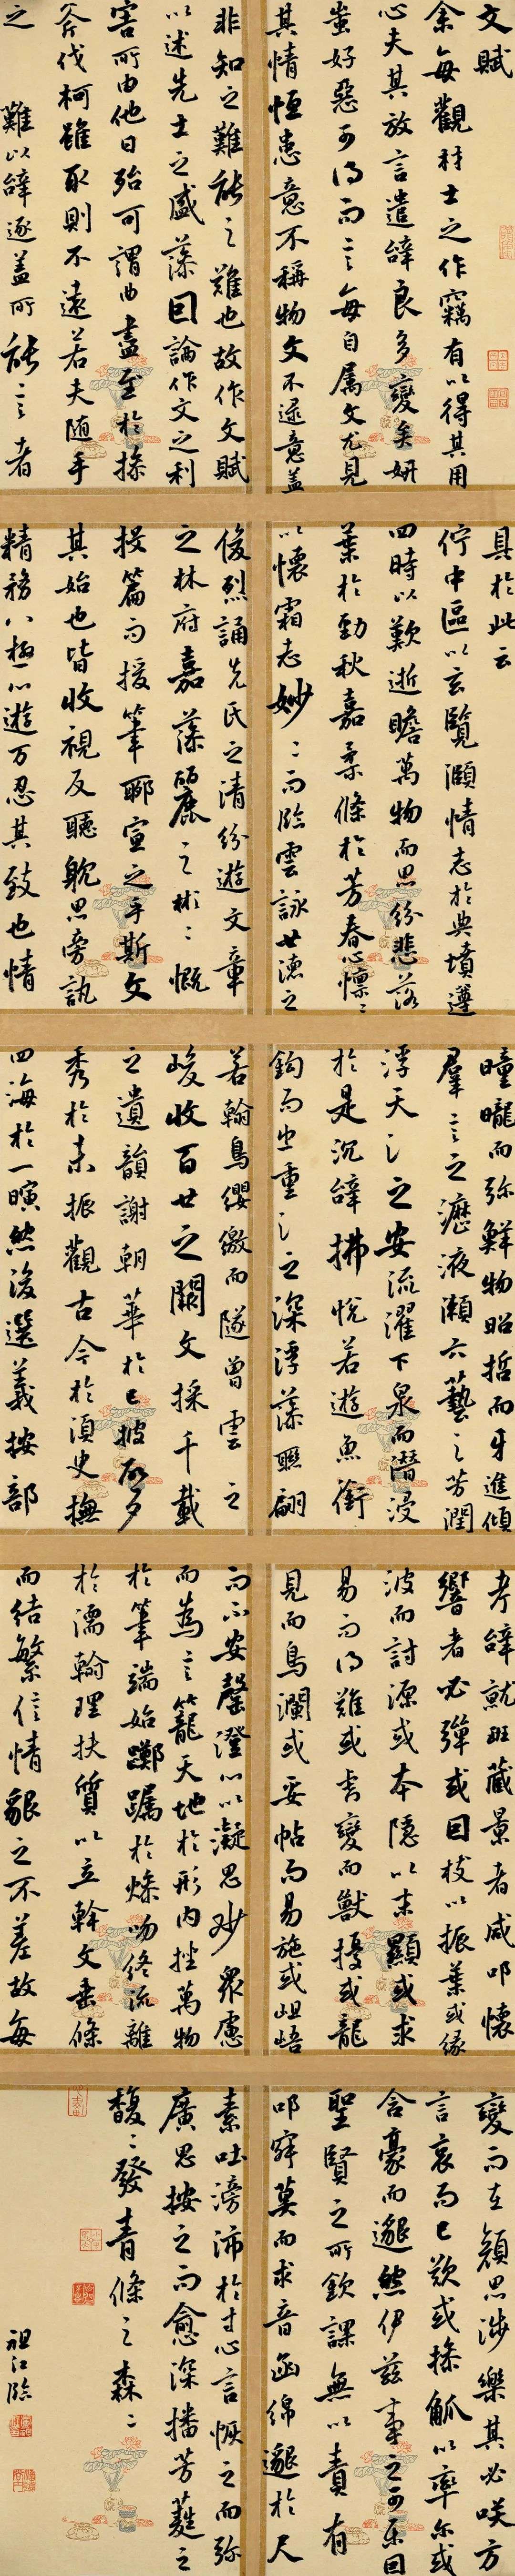 文賦
余每觀材士之作竊有以得其用
心夫其放言遣辭良多變矣妍
蚩好惡可得而言每自属文尤見
其情恒患意不稱物文不逮意蓋
非知之難能之難也故作文賦
以述先士之盛藻因論作文之利
害所由他日殆可謂曲盡至於操
斧伐柯雖取則不遠若夫随手
之 難以辭逐蓋所能言者
具於此云
佇中區以玄覽頤情志於典墳遵
四時以歎逝瞻萬物而思紛悲落
葉於勁秋嘉柔條於芳春心懍〻
以懷霜志妙〻而臨雲詠世德之
俊烈誦先氏之清紛遊文章
之林府嘉藻麗之彬〻慨
投篇而援筆聊宣之乎斯文
其始也皆收視反聽耽思旁訊
精務八極心遊万忍其致也情
曈曨而弥鮮物昭晢而互進傾
羣言之瀝液漱六藝之芳潤
浮天〻之安流濯下泉而潛浸
於是沉辭拂悅若遊魚銜
鉤而出重〻之深浮藻聯翩
若翰鳥纓繳而隧曾雲之
峻收百世之闕文採千載
之遺韻謝朝華於已披啟夕
秀於未振觀古今於須臾撫
四海於一瞚然後選義按部
考辭就班藏景者咸叩懷
響者必彈或因枝以振葉或緣
波而討源或本隱以末顯或求
易而得難或虎變而獸擾或龍
見而鳥瀾或妥帖而易施或岨峿
而不安罄澄心以凝思眇衆慮
而為言籠天地於形內挫萬物
於筆端始躑躅於燥吻終流離
於濡翰理扶質以立幹文垂條
而結繁信情貌之不差故每
變而在顏思涉樂其必咲方
言哀而已歎或操觚以率尔或
含豪而邈然伊茲事之可樂固
聖賢之所欽課無以責有
叩寂莫而求音函綿邈於尺
素吐滂沛於寸心言恢之而弥
廣思按之而愈深播芳蕤之
馥〻發青條之森〻
祖江臨